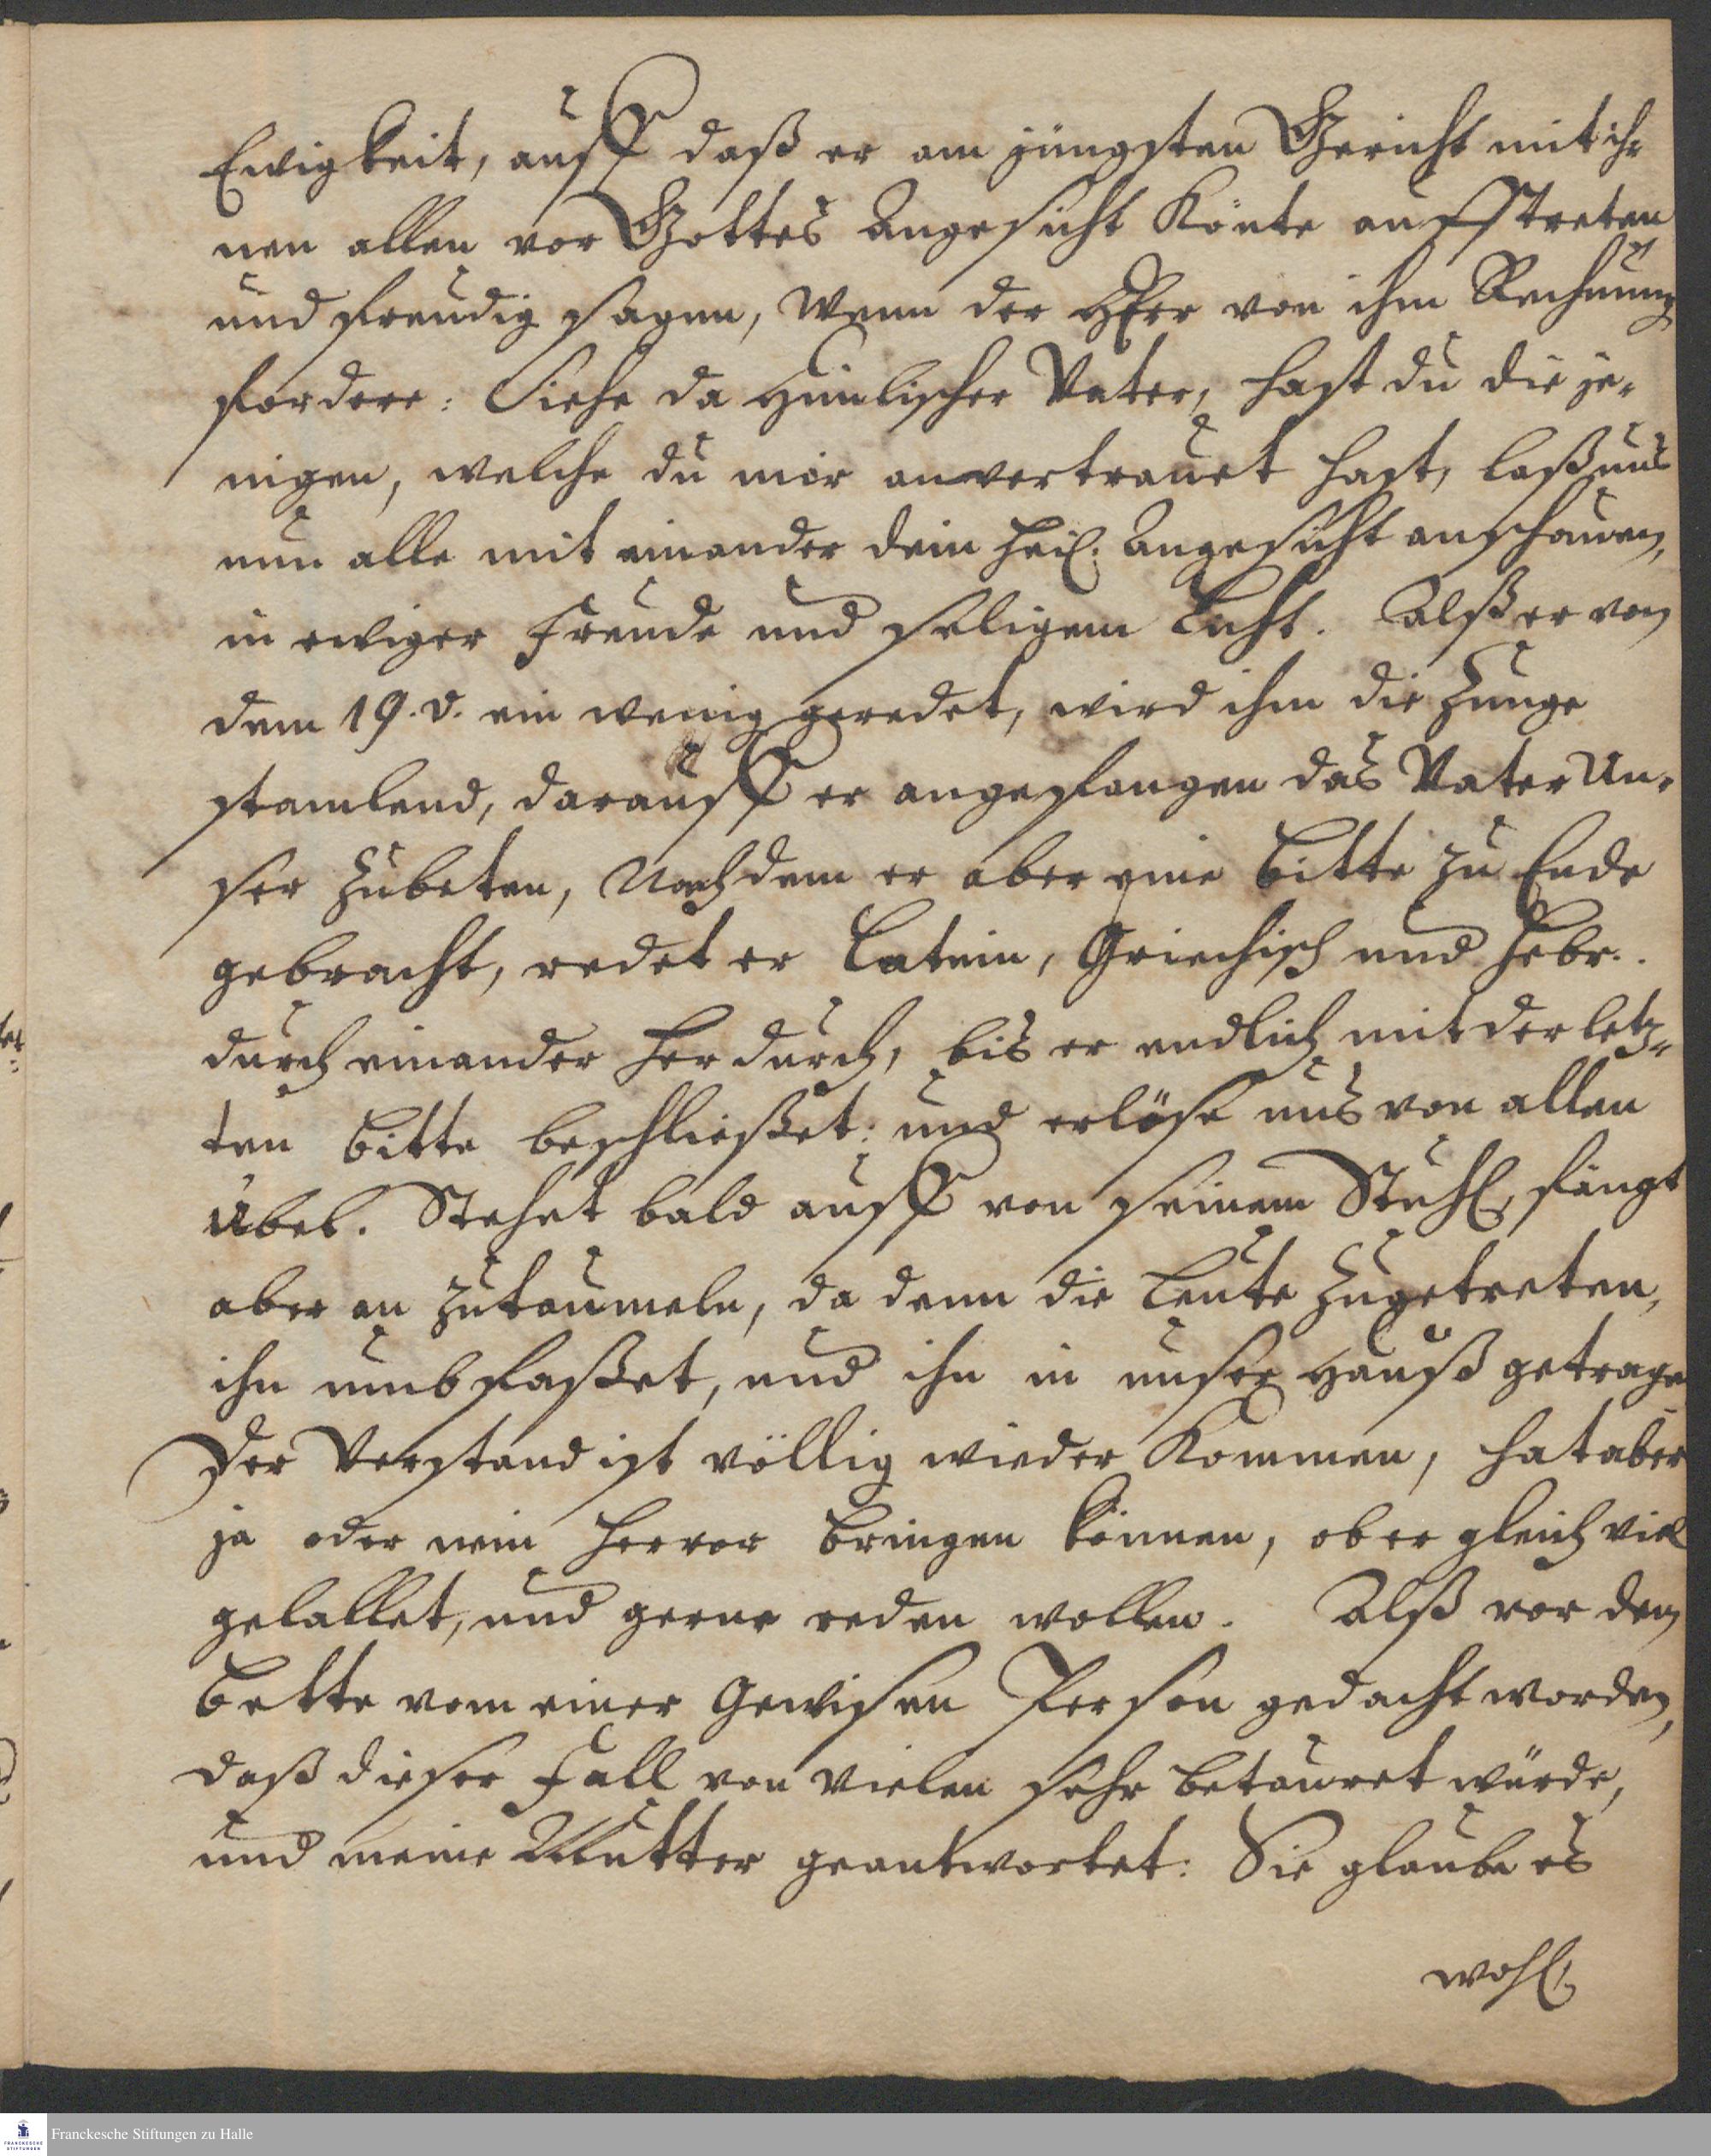 Ewigkeit, auff daß er am jüngsten Gericht mit ih-
nen allen vor Gottes Angesicht könte aufftreten
und freudig sagen, wenn der HErr von ihm Rechnung
fordere: Siehe da himlischer Vater, hast du die je-
nigen, welche du mir anvertrauet hast, laß uns
nun alle mit einander dein heil. Angesicht anschauen,
in ewiger Freude und seligem Licht. Alß er von
dem 19. v. ein wenig geredet, wird ihm die Zunge
stamlend, darauff er angefangen das Vater Un-
ser zubeten, Nachdem er aber eine Bitte zu Ende
gebracht, redet er Latein, Griechisch und Hebr..
durch einander her durch, bis er endlich mit der letz-
ten Bitte beschließet: und erlöse uns von allen
Übel. Stehet bald auff von seinem Stuhl, fängt
aber an zutaumeln, da denn die Leute zugetreten,
ihn umbfaßet, und ihn in unser Hauß getragen
Der Verstand ist völlig wieder kommen, hat aber
ja oder nein hervor bringen können, ob er gleich viel
gelallet, und gerne reden wollen. Alß vor dem
Bette vom einer Gewisen Person gedacht worden,
daß dieser Fall von vielen sehr betauret würde,
und meine Mutter geantwortet: Sie glaube es
wohl,
Franckesche Stiftungen zu Halle